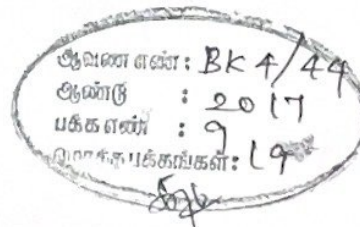 ஆவண எண் : BK 4/44
ஆண்டு : 2017
பக்க எண் : 9
மொத்த பக்கங்கள் : 19